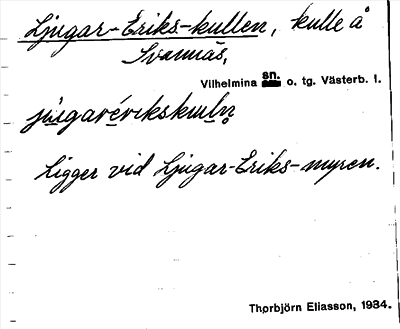 Ljugar-Eriks-kullen, kulle å
Svannäs,
Vilhelmina sn. o. tg. Västerb. l.
ligger vid Ljugar-Eriks-myren.
Thorbjörn Eliasson, 1934.